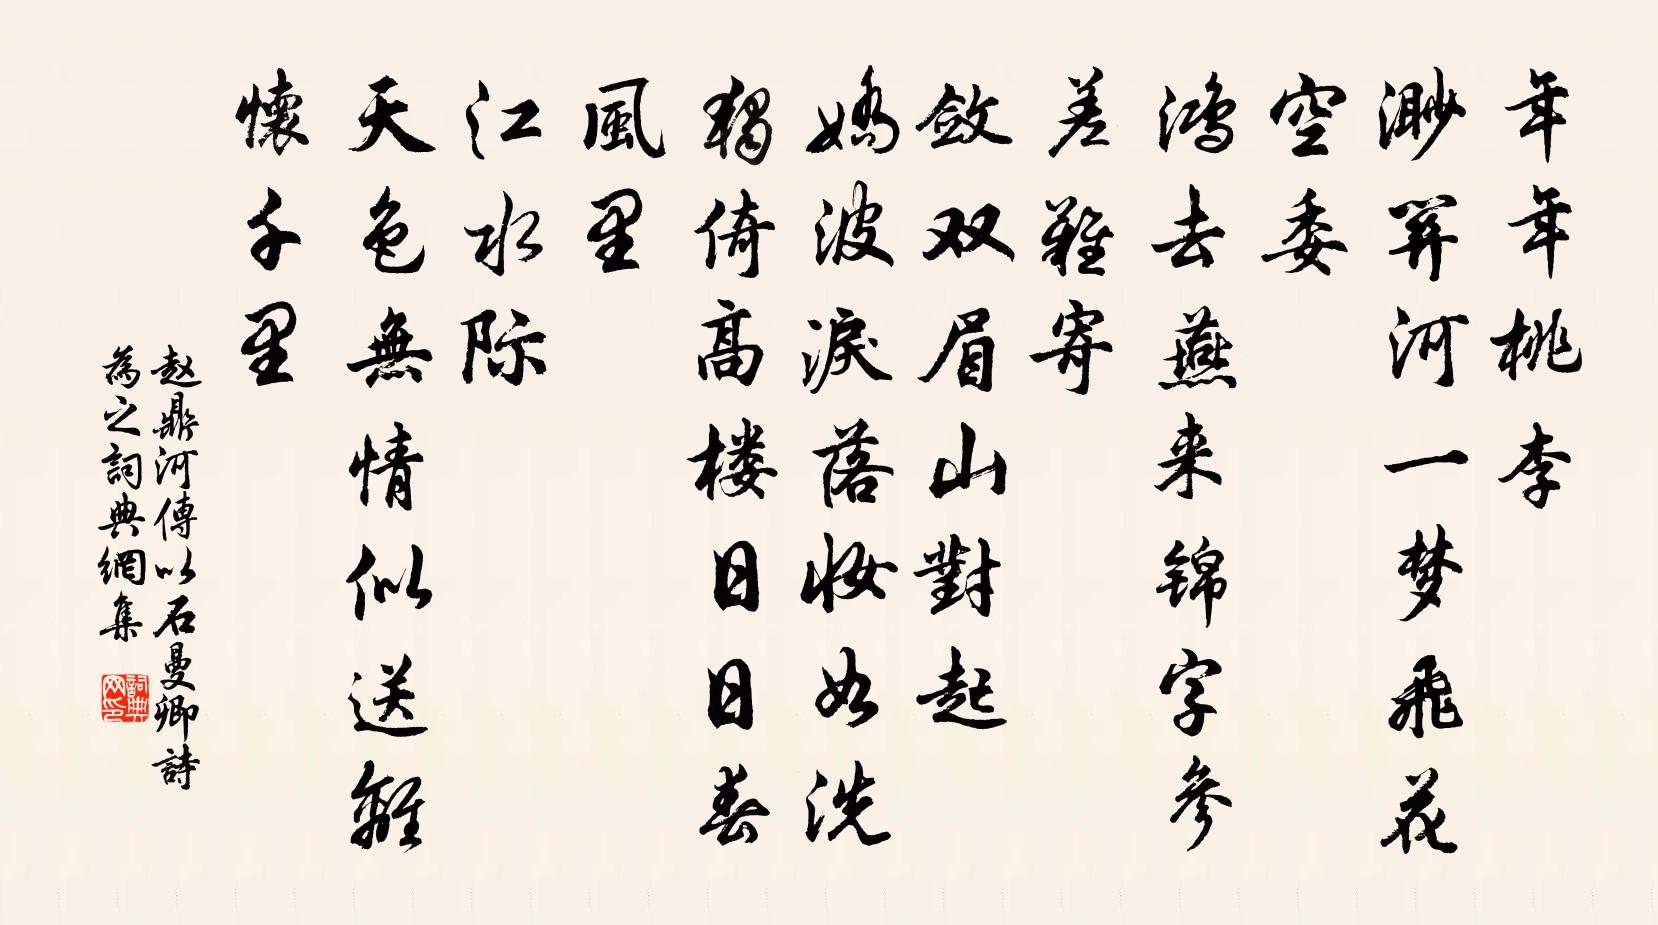 年年桃李
渺関河一梦飛花
空委
鸿去燕来锦字参
差難寄
斂双眉山對起
嬌波淚落妆如洗
獨倚高楼日日春
風里
江水际
天色無情似送離
懷千里
赵鼎河傳以石曼卿詩
為之詞典網集
詞典网印